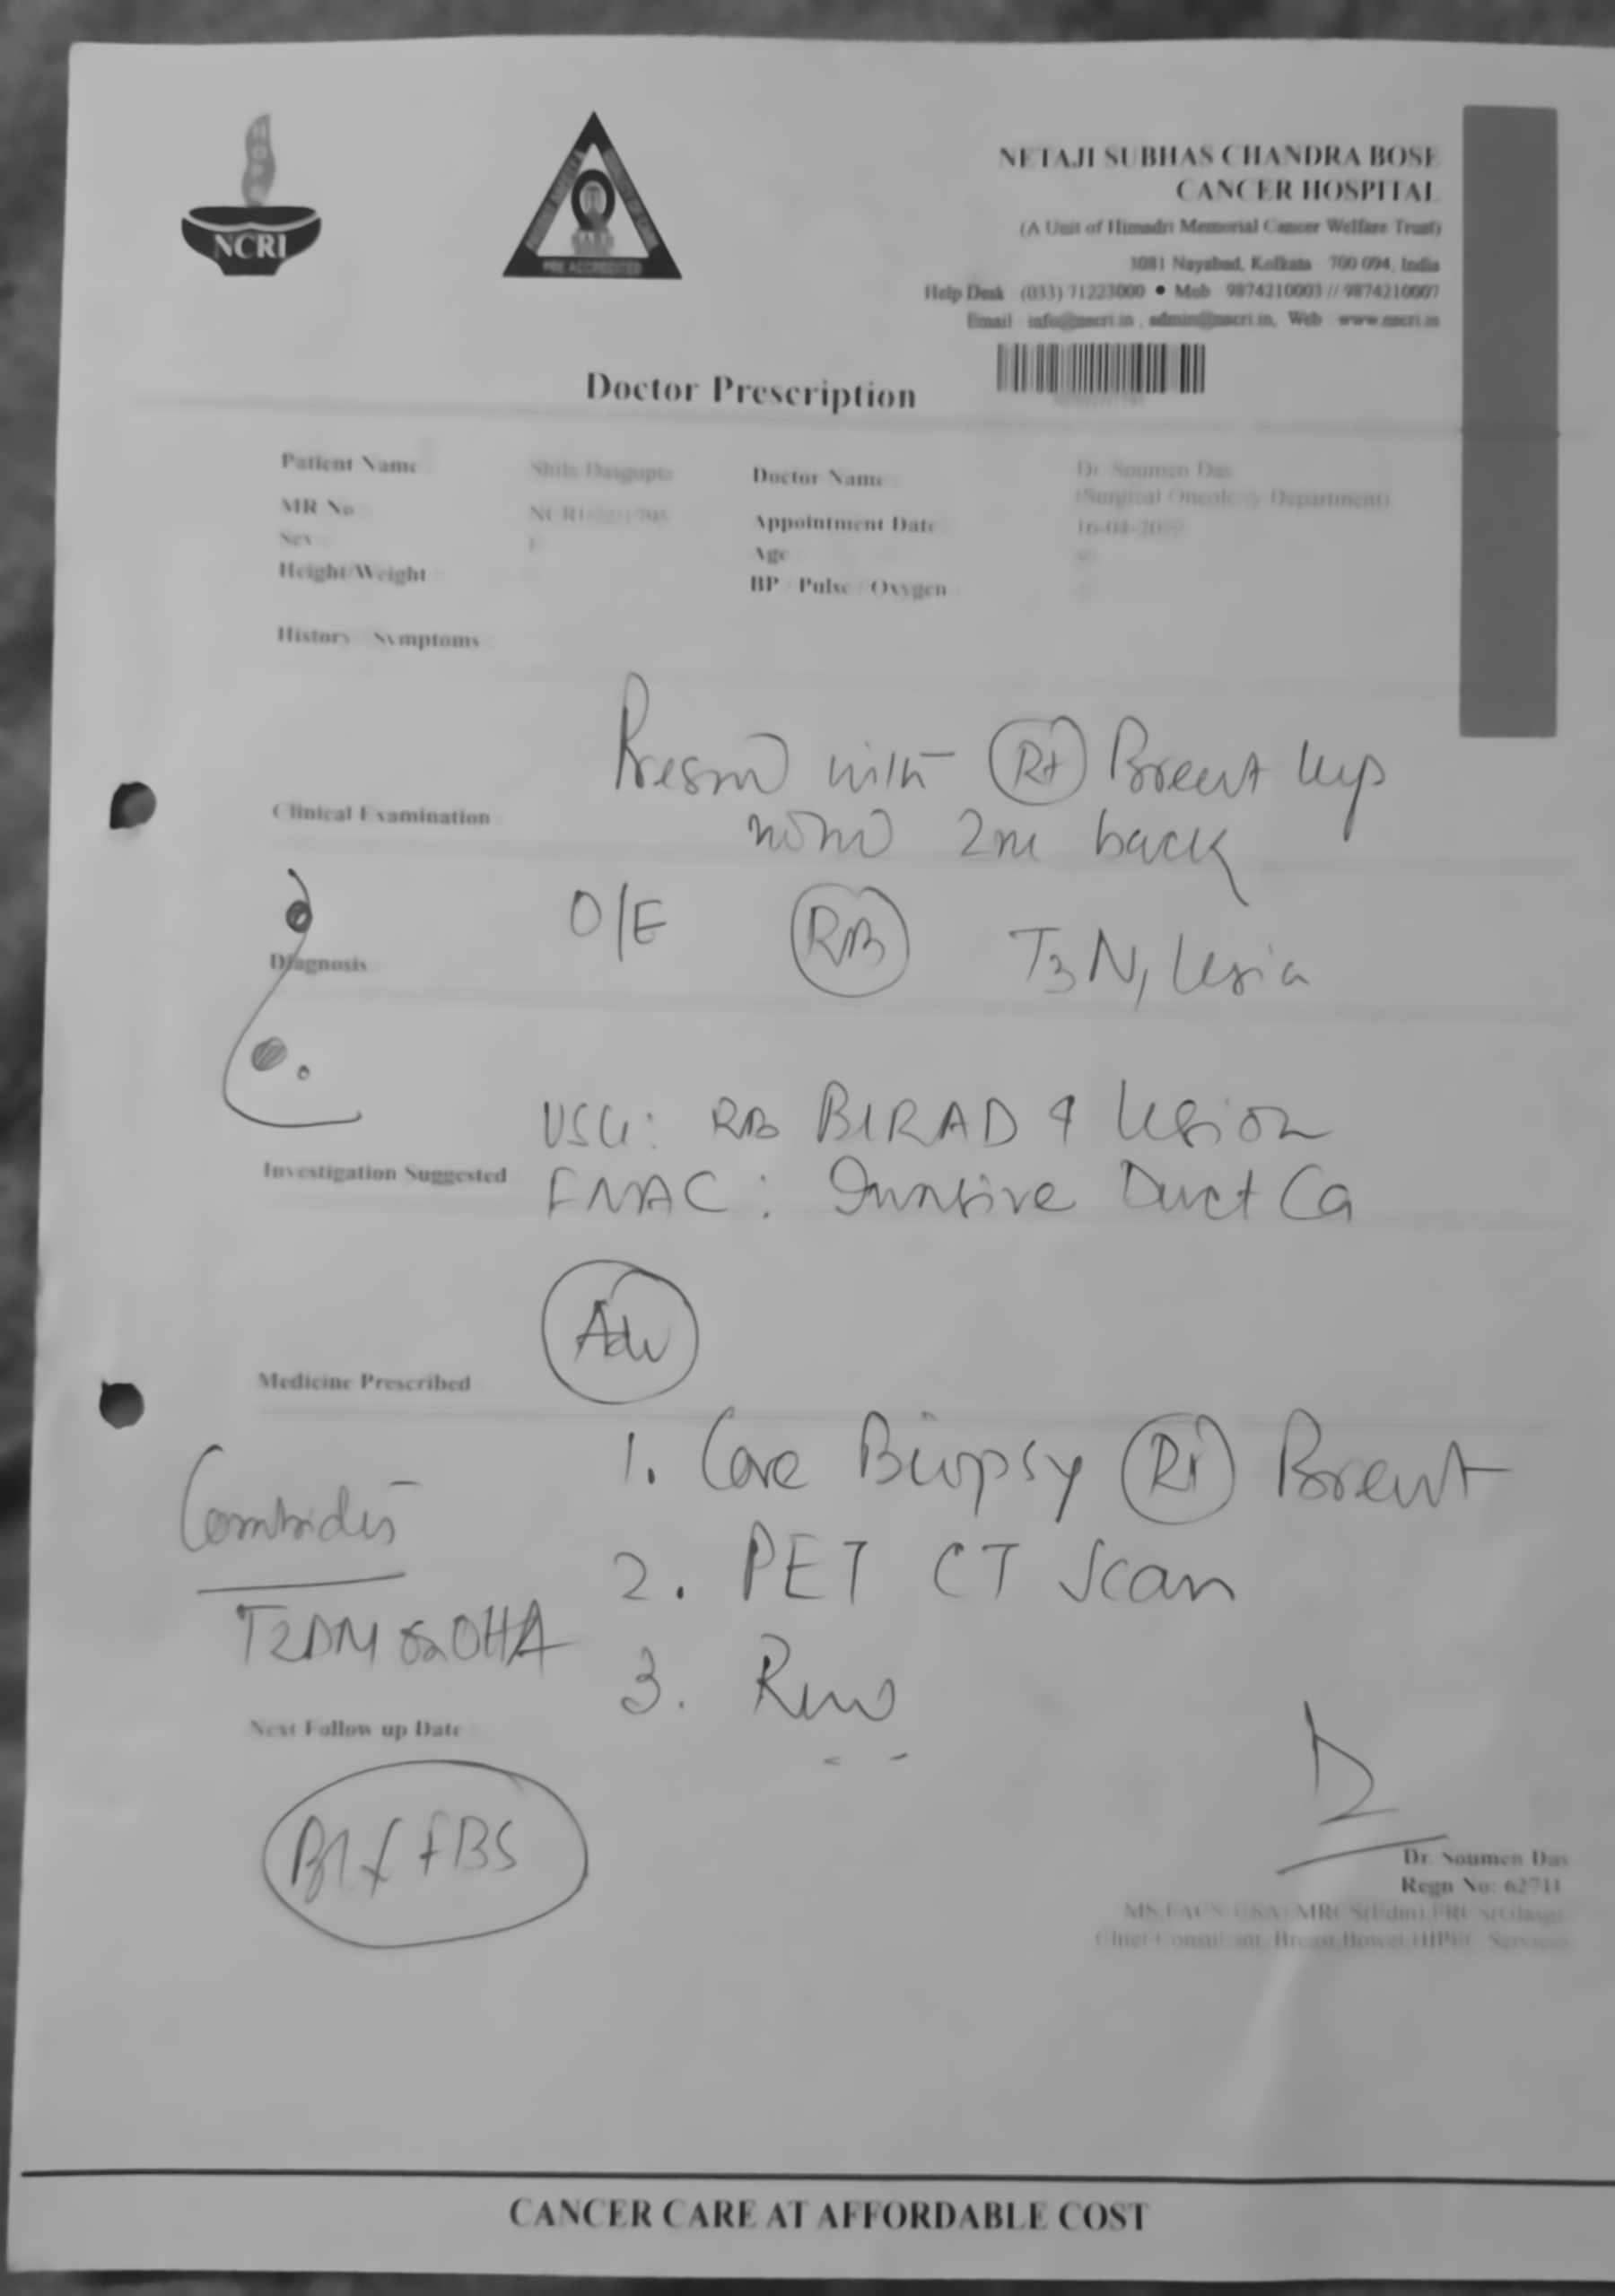 HOPE
NCRI
PRE ACCREDITED
NETAJI SUBHAS CHANDRA BOSE
CANCER HOSPITAL
(A Unit of Himadri Memorial Cancer Welfare Trust)
3081 Nayabad, Kolkata 700 094, India
Help Desk (033) 71223000 • Mob 9874210003 // 9874210007
Email : info@nscri.in , admin@nscri.in, Web www.nscri.in
Doctor Prescription
Patient Name : Shila Dasgupta Doctor Name : Dr. Soumen Das
(Surgical Oncology Department)
MR No : Appointment Date : 16-04-2022
Sex : F Age
Height/Weight BP / Pulse / Oxygen :
History / Symptoms :
with Rt Breast lump
Clinical Examination :
back
O/E RB T3 N1 lesion
Diagnosis :
USG: RB BIRAD 4 lesion
Investigation Suggested :
FNAC: Invasive Duct Ca
Adv
Medicine Prescribed :
1. Core Biopsy Rt Breast
2. PET CT Scan
T2DM on OHA
3.
Next Follow up Date :
FBS
Dr. Soumen Das
Regn No: 62711
MS,FACS(USA),MRCS(Edin),FRCS(Glasg)
Chief Consultant, Breast,Bowel,HIPEC Services
CANCER CARE AT AFFORDABLE COST